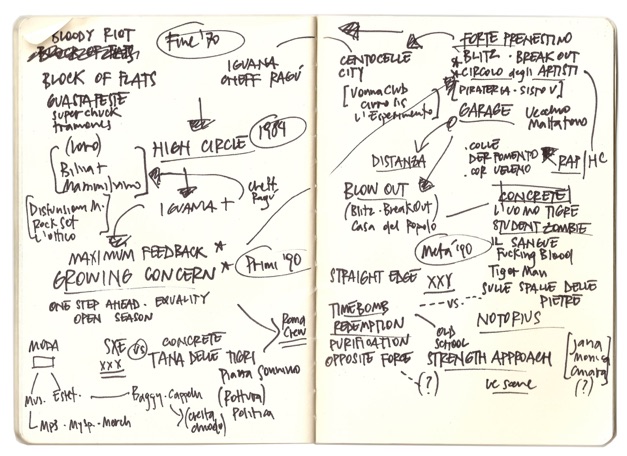 BLOODY RIOT
BLOCK OF FLATS
BLOCK OF FLATS
GUASTAFESTE
super chuck
tramones
(Loro)
Fine '70
IGUANA
CHEFF RAGÚ
HIGH CIRCLE
1984
IGUANA +
cheff.
Ragú
Rock Set
MAXIMUM FEEDBACK *
GROWING CONCERN *
Primi '90
ONE STEP AHEAD. EQUALITY
OPEN SEASON
Roma
Crew
MODA
SXE VS CONCRETE
XXX TANA DELLE TIGRI
Mus. Estet. Baggy. Cappelli
(Rottura)
Politica
Mp3 · Mysp. · Merch
CENTOCELLE
CITY
FORTE PRENESTINO
* BLITZ · BREAKOUT
* CIRCOLO degli ARTISTI
[PIRATERIA · SISTO V]
GARAGE
Vecchio
Mattatoio
DISTANZA
.COLLE
DER FOMENTO
.COR VELENO
RAP/HC
BLOW OUT
(Blitz. BreakOut
Casa del Popolo)
CONCRETE
L'UOMO TIGRE
STUDENT ZOMBIE
IL SANGUE
Fucking Blood
Tiger Man
Metà '90
STRAIGHT EDGE XXX
VS.
SULLE SPALLE DELLE
PIETRE
TIMEBOMB
REDEMPTION
PURIFICATION
OPPOSITE FORCE
OLD
SCHOOL
NOTORIUS
STRENGTH APPROACH
(?)
(?)